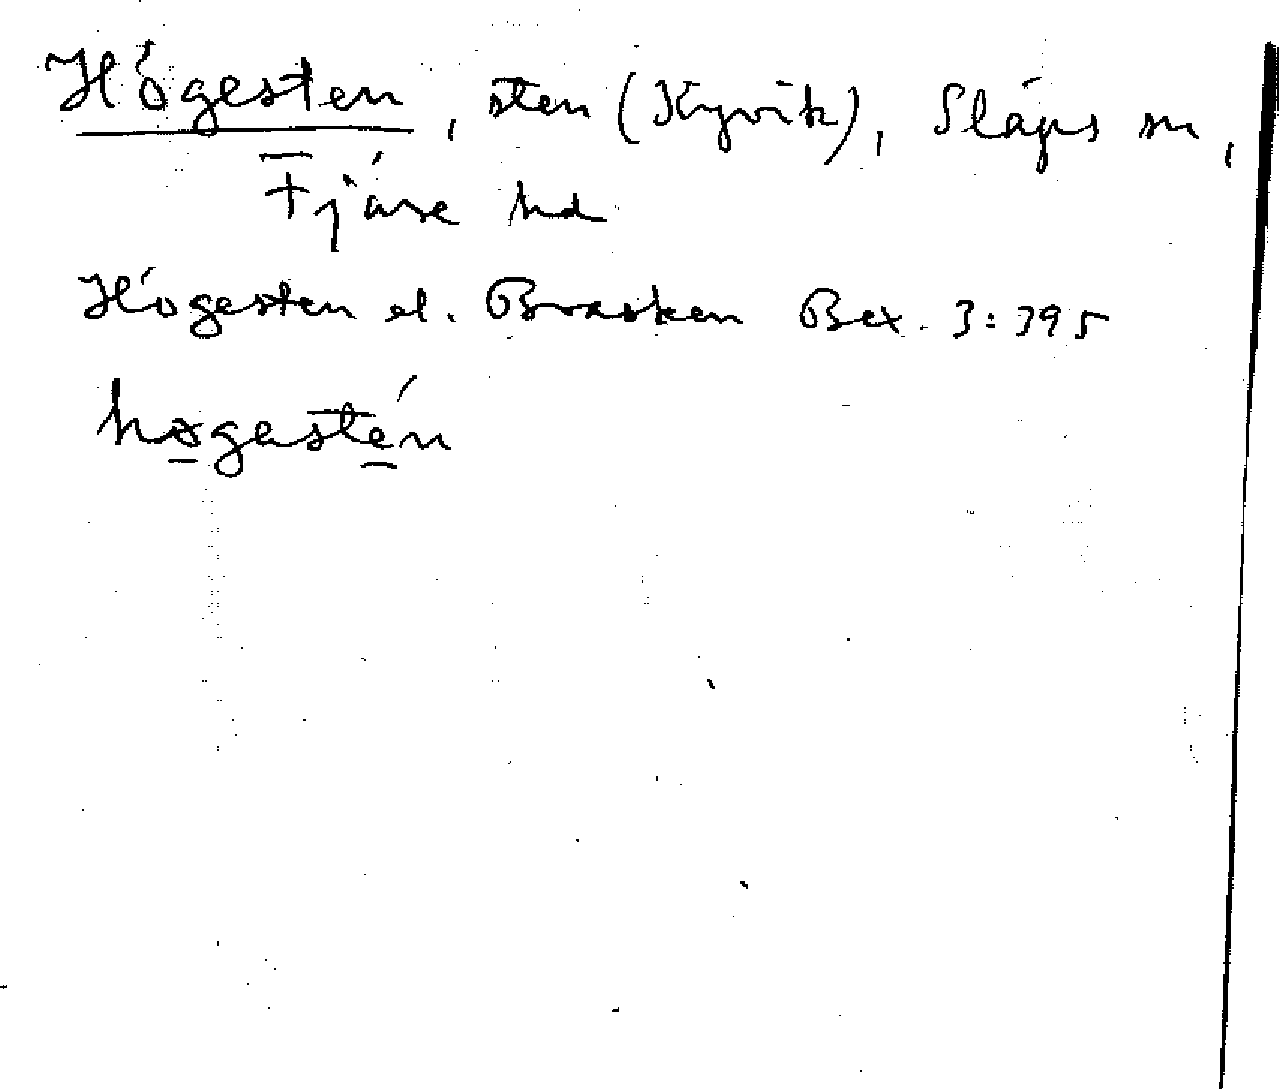 Högesten, sten (Kyvik), Släps sn,
Fjäre hd
Högesten el. Brasken Bex. 3:395
høgastén